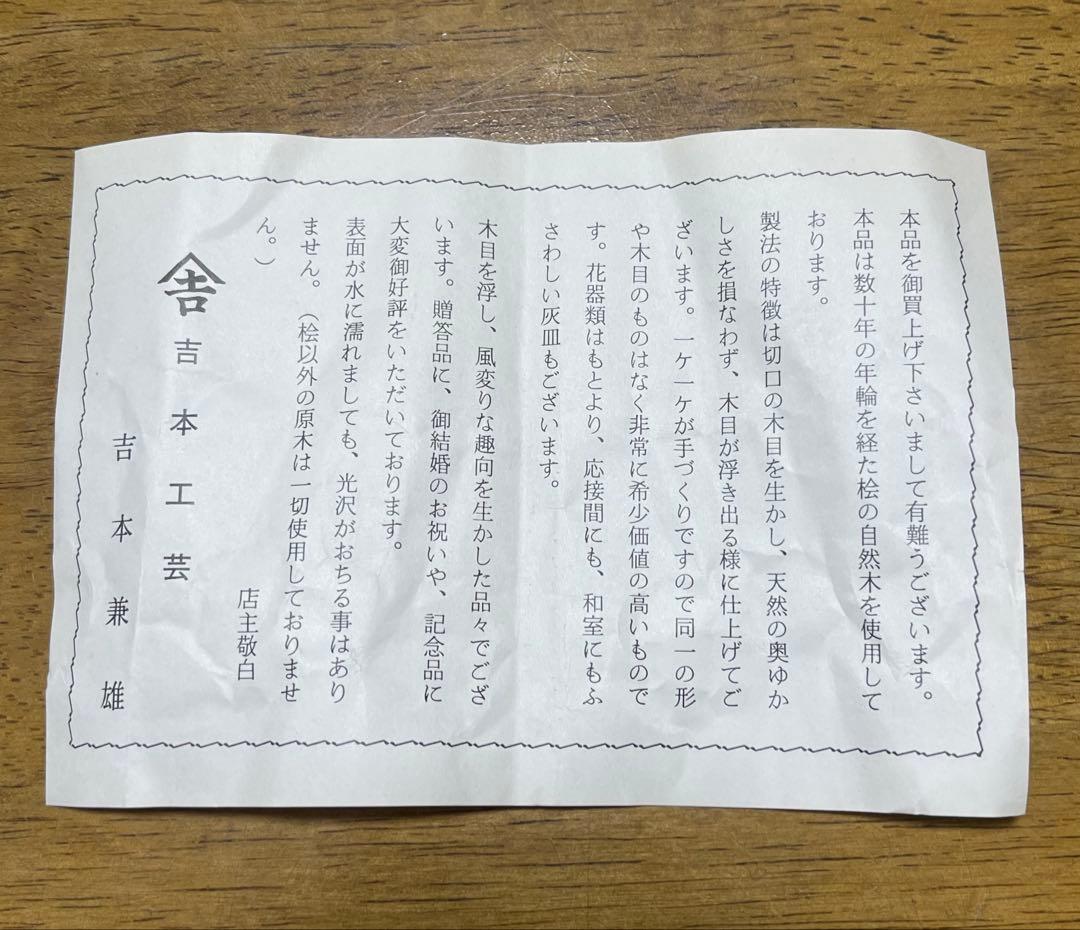 本品を御買上げ下さいまして有難うございます。
本品は数十年の年輪を経た桧の自然木を使用して
おります。
製法の特徴は切口の木目を生かし、天然の奥ゆか
しさを損なわず、木目が浮き出る様に仕上げてご
ざいます。一ケ一ケが手づくりですので同一の形
や木目のものはなく非常に希少価値の高いもので
す。花器類はもとより、応接間にも、和室にもふ
さわしい灰皿もございます。
木目を浮し、風変りな趣向を生かした品々でござ
います。贈答品に、御結婚のお祝いや、記念品に
大変御好評をいただいております。
表面が水に濡れましても、光沢がおちる事はあり
ません。（桧以外の原木は一切使用しておりませ
ん。）
店主敬白
吉 吉本工芸
吉本兼雄